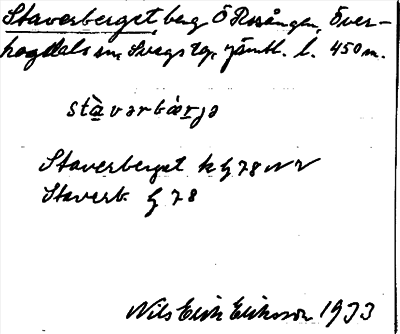 Staverberget, berg Ö Rosången, Över-
hogdals sn, Svegs tg, Jämtl. l. 450 m.
stàvərbærjə
Staverberget k G 78 NV
Staverb G 78
Nils Erik Eriksson 1933